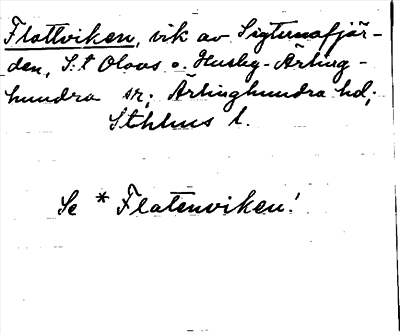 Flottviken, vik av Sigtunafjär-
den, S:t Olovs o. Husby-Ärling-
hundra sr; Ärlinghundra hd;
Sthlms l.
Se *Flatenviken!